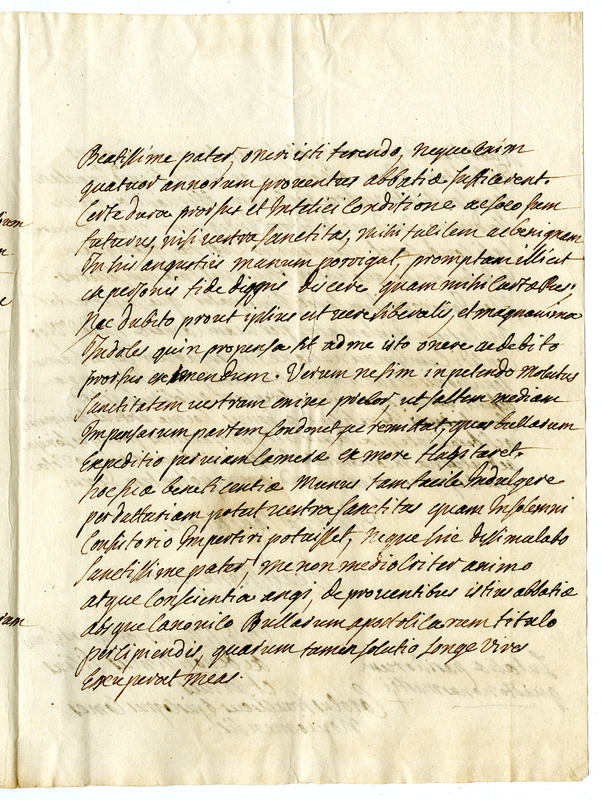 Beatissime pater, oneri isti ferendo, neque enim
quatuor annorum proventus abbatiæ sufficerent.
Certe dura prorsus et Infelici Conditione, ac loco sum
futurus, nisi vestra sanctitas, mihi facilem ac benignam
In his angustiis manum porrigat, promptam illi est
ex personis fide dignis discere quam mihi Curta Res;
Nec dubito prout ipsius est vere liberalis, et magnanima
Indoles quin propensa sit ad me isto onere ac debito
prorsus eximendum. Verum ne sim in petendo Molestus
sanctitatem vestram enixe precor, ut saltem mediam
Impensarum partem Condonet, ac remittat, quas bullarum
Expeditio per viam Cameræ ex more flagitaret.
hoc suæ beneficentiæ Munus tam facile Indulgere
per datariam potest vestra sanctitas quam In solemni
Consistorio Impertiri potuisset, neque hic dissimulabo
sanctissime pater, me non mediocriter animo
atque Conscientia angi, de proventibus istius abbatiæ
absque Canonico Bullarum apostolicarum titulo
percipiendis, quarum tamen solutio longe vires
Exuperat meas.